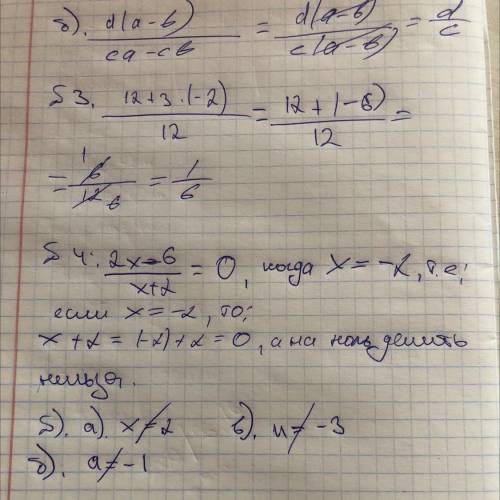 б). d(a-b)/(ca-cb) = d(a-b)/(c(a-b)) = d/c
§ 3. (12+3·(-2))/12 = (12+(-6))/12 =
= 6/12 1 6 = 1/6
§ 4: (2x-6)/(x+2) = 0, когда x = -2, т.е;
если x = -2, то;
x + 2 = (-2)+2 = 0, а на ноль делить
нельзя.
5). а). x ≠ 2 в). n ≠ -3
б). a ≠ -1